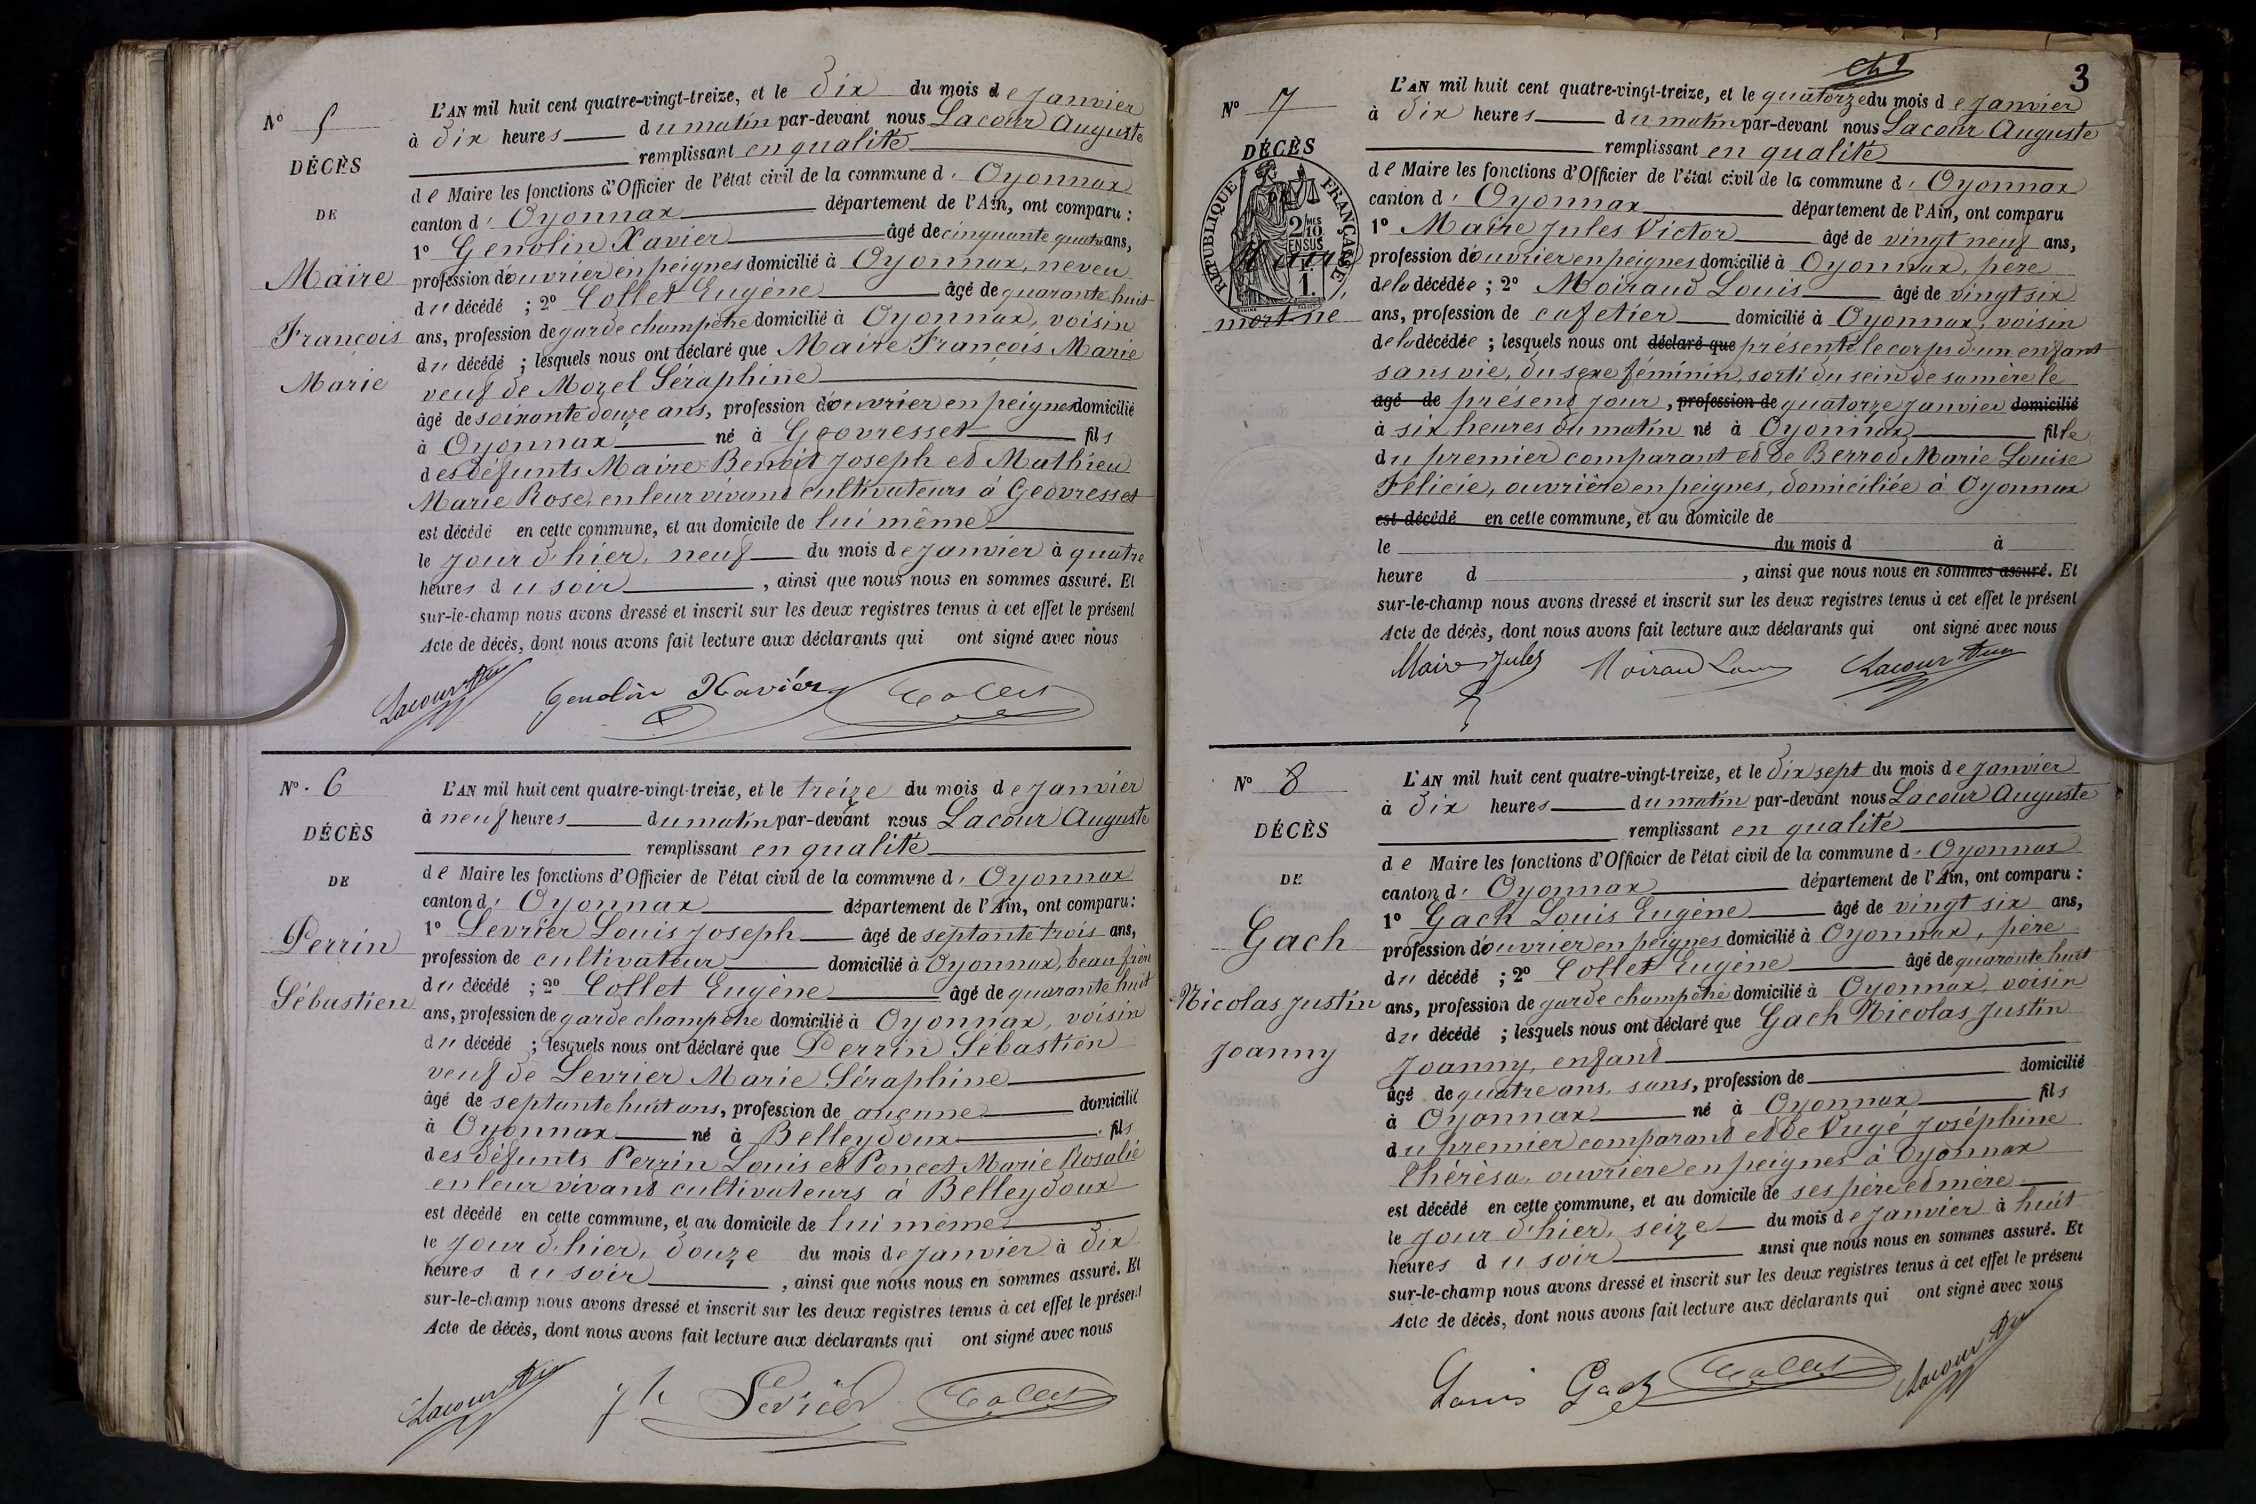 N° 5
DÉCÈS
DE
Maire
François
Marie
L'AN mil huit cent quatre-vingt-treize, et le dix du mois de janvier
à dix heures du matin par-devant nous Lacour Auguste
remplissant en qualité
de Maire les fonctions d'Officier de l'état civil de la commune d'Oyonnax
canton d'Oyonnax département de l'Ain, ont comparu :
1° Genolin Xavier âgé de cinquante quatre ans,
profession d'ouvrier en peignes domicilié à Oyonnax, neveu
du décédé ; 2° Collet Eugène âgé de quarante huit
ans, profession de garde champêtre domicilié à Oyonnax, voisin
du décédé ; lesquels nous ont déclaré que Maire François Marie
veuf de Morel Séraphine
âgé de soixante douze ans, profession d'ouvrier en peignes domicilié
à Oyonnax né à Géovresset fils
des défunts Maire Benoit Joseph et Mathieu
Marie Rose, en leur vivant cultivateurs à Géovresset
est décédé en cette commune, et au domicile de lui même
le jour d'hier, neuf du mois de janvier à quatre
heures du soir, ainsi que nous nous en sommes assuré. Et
sur-le-champ nous avons dressé et inscrit sur les deux registres tenus à cet effet le présent
Acte de décès, dont nous avons fait lecture aux déclarants qui ont signé avec nous
Lacour Genolin Xavier Collet
N° 6
DÉCÈS
DE
Perrin
Sébastien
L'AN mil huit cent quatre-vingt-treize, et le treize du mois de janvier
à neuf heures du matin par-devant nous Lacour Auguste
remplissant en qualité
de Maire les fonctions d'Officier de l'état civil de la commune d'Oyonnax
canton d'Oyonnax département de l'Ain, ont comparu :
1° Levrier Louis Joseph âgé de septante trois ans,
profession de cultivateur domicilié à Oyonnax, beau frère
du décédé ; 2° Collet Eugène âgé de quarante huit
ans, profession de garde champêtre domicilié à Oyonnax, voisin
du décédé ; lesquels nous ont déclaré que Perrin Sébastien
veuf de Levrier Marie Séraphine
âgé de septante huit ans, profession de aucune domicilié
à Oyonnax né à Belleydoux fils
des défunts Perrin Louis et Poncet Marie Rosalie
en leur vivant cultivateurs à Belleydoux
est décédé en cette commune, et au domicile de lui même
le jour d'hier, douze du mois de janvier à dix
heures du soir, ainsi que nous nous en sommes assuré. Et
sur-le-champ nous avons dressé et inscrit sur les deux registres tenus à cet effet le présent
Acte de décès, dont nous avons fait lecture aux déclarants qui ont signé avec nous
Lacour Levrier Collet
3
N° 7
DÉCÈS
RÉPUBLIQUE FRANÇAISE
2/10 MES
EN SUS
1 F.
Maire
mort-né
L'AN mil huit cent quatre-vingt-treize, et le quatorze du mois de janvier
à dix heures du matin par-devant nous Lacour Auguste
remplissant en qualité
de Maire les fonctions d'Officier de l'état civil de la commune d'Oyonnax
canton d'Oyonnax département de l'Ain, ont comparu
1° Maire Jules Victor âgé de vingt neuf ans,
profession d'ouvrier en peignes domicilié à Oyonnax, père
de la décédée ; 2° Moiraud Louis âgé de vingt six
ans, profession de cafetier domicilié à Oyonnax, voisin
de la décédée ; lesquels nous ont déclaré que présenté le corps d'un enfant
sans vie, du sexe féminin, sorti du sein de sa mère le
âgé de présent jour, profession de quatorze janvier domicilié
à six heures du matin né à Oyonnax fille
du premier comparant et de Berrod Marie Louise
Félicie, ouvrière en peignes, domiciliée à Oyonnax
est décédé en cette commune, et au domicile de
le du mois d à
heure d , ainsi que nous nous en sommes assuré. Et
sur-le-champ nous avons dressé et inscrit sur les deux registres tenus à cet effet le présent
Acte de décès, dont nous avons fait lecture aux déclarants qui ont signé avec nous
Maire Jules Moiraud Louis Lacour
N° 8
DÉCÈS
DE
Gach
Nicolas Justin
Joanny
L'AN mil huit cent quatre-vingt-treize, et le dix sept du mois de janvier
à dix heures du matin par-devant nous Lacour Auguste
remplissant en qualité
de Maire les fonctions d'Officier de l'état civil de la commune d'Oyonnax
canton d'Oyonnax département de l'Ain, ont comparu :
1° Gach Louis Eugène âgé de vingt six ans,
profession d'ouvrier en peignes domicilié à Oyonnax, père
du décédé ; 2° Collet Eugène âgé de quarante huit
ans, profession de garde champêtre domicilié à Oyonnax, voisin
du décédé ; lesquels nous ont déclaré que Gach Nicolas Justin
Joanny, enfant
âgé de quatre ans, sans, profession de domicilié
à Oyonnax né à Oyonnax fils
du premier comparant et de Pugé Joséphine
Thérèsa, ouvrière en peignes à Oyonnax
est décédé en cette commune, et au domicile de ses père et mère
le jour d'hier, seize du mois de janvier à huit
heures du soir ainsi que nous nous en sommes assuré. Et
sur-le-champ nous avons dressé et inscrit sur les deux registres tenus à cet effet le présent
Acte de décès, dont nous avons fait lecture aux déclarants qui ont signé avec nous
Louis Gach Collet Lacour